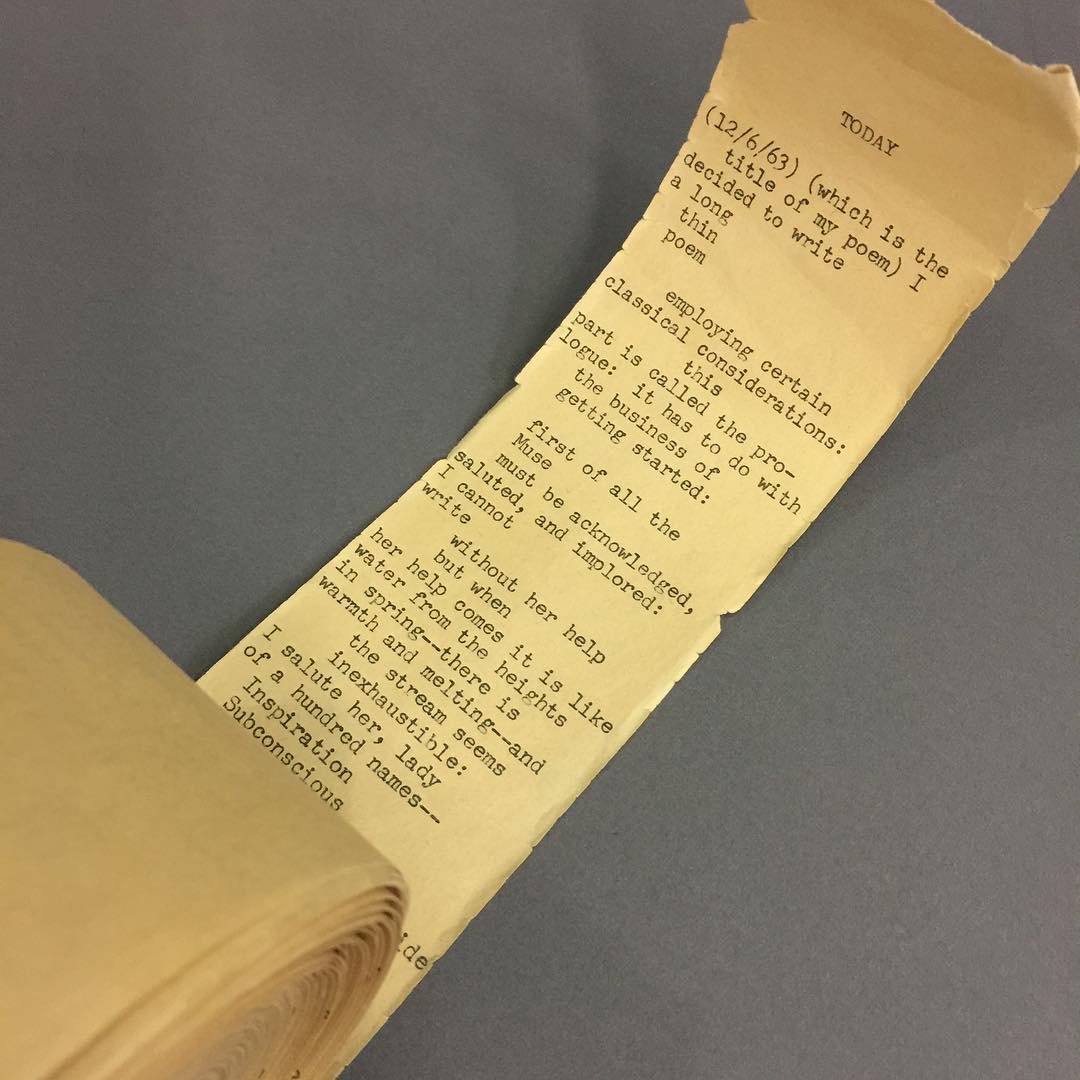 TODAY
(12/6/63) (which is the
title of my poem) I
decided to write
a long
thin
poem
employing certain
classical considerations:
this
part is called the pro-
logue: it has to do with
the business of
getting started:
first of all the
Muse
must be acknowledged,
saluted, and implored:
I cannot
write
without her help
but when
her help comes it is like
water from the heights
in spring--there is
warmth and melting--and
the stream seems
inexhaustible:
I salute her, lady
of a hundred names--
Inspiration
Subconscious